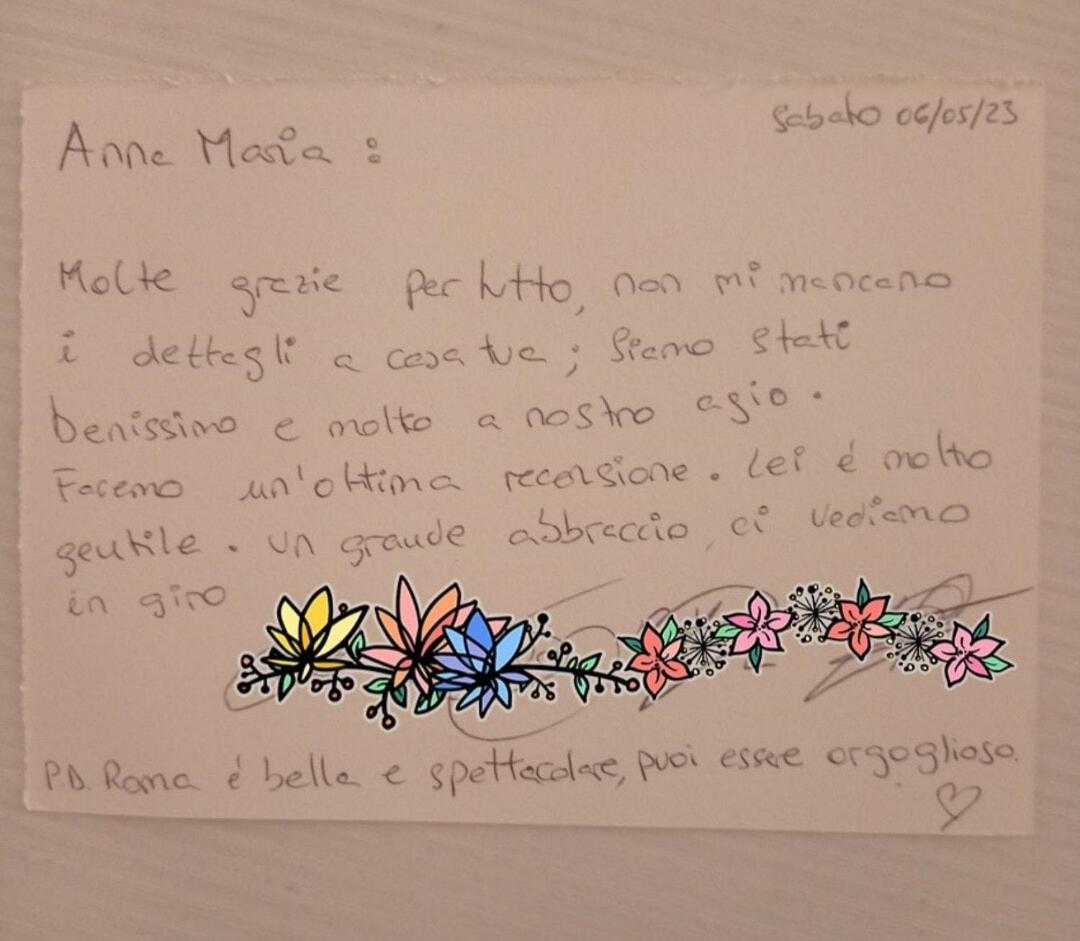 Sabato 06/05/23
Anna Maria :
Molte grazie per tutto, non mi mancano
i dettagli a casa tua ; Siamo stati
benissimo e molto a nostro agio .
Facemo un'ottima recensione . Lei é molto
gentile . un grande abbraccio, ci vediamo
in giro
P.D. Roma é bella e spettacolare, puoi essere orgoglioso.